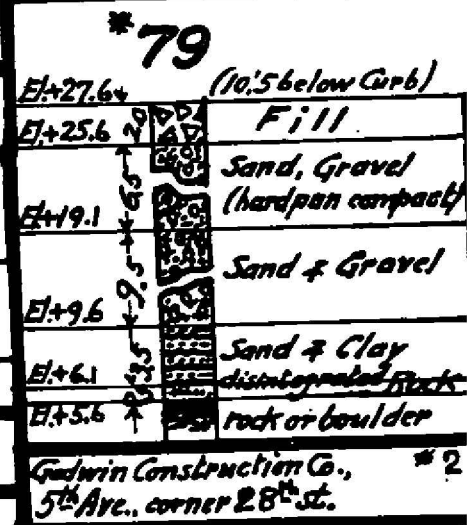 #79
El.+27.6± (10.'5 below Curb)
El.+25.6 2.0 Fill
6.5 Sand, Gravel
El.+19.1 (hardpan compact)
9.5 Sand & Gravel
El.+9.6
3.5 Sand & Clay
El.+6.1 disintegrated Rock
El.+5.6 rock or boulder
Godwin Construction Co., #2
5th Ave., corner 28th st.